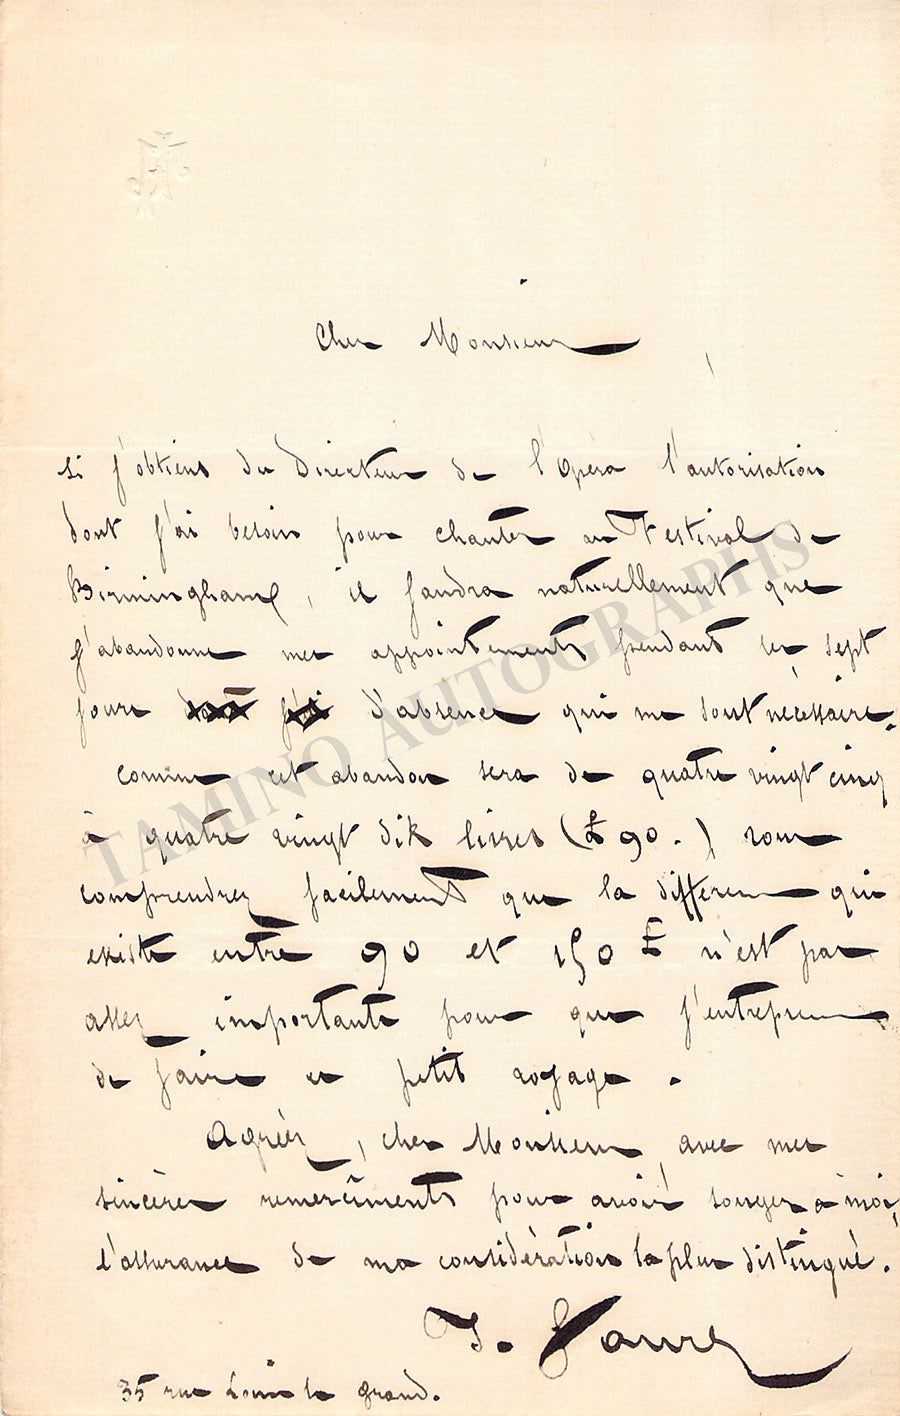 Cher Monsieur
si j'obtiens du Directeur de l'Opéra l'autorisation
dont j'ai besoin pour chanter au Festival de
Birmingham, il faudra naturellement que
j'abandonne mes appointements pendant les sept
jours d'absence qui me sont nécessaires.
comme cet abandon sera de quatre vingt cinq
à quatre vingt dix livres (£ 90.) vous
comprendrez facilement que la différence qui
existe entre 90 et 150 £ n'est pas
assez importante pour que j'entreprenne
de faire ce petit voyage.
Agréez, cher Monsieur, avec mes
sincères remerciments pour avoir songer à moi,
l'assurance de ma considération la plus distingué.
J. Faure
35 rue Louis le grand.
TAMINO AUTOGRAPHS